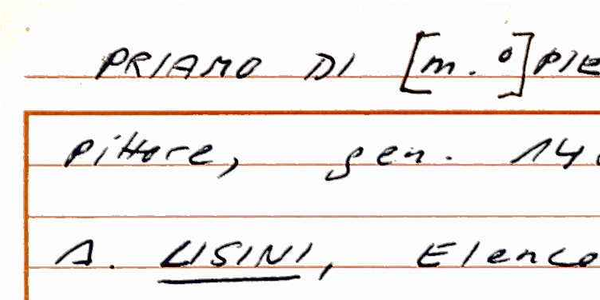 PRIAMO DI [m.º] PIE
pittore, gen. 14
A. LISINI, Elenco